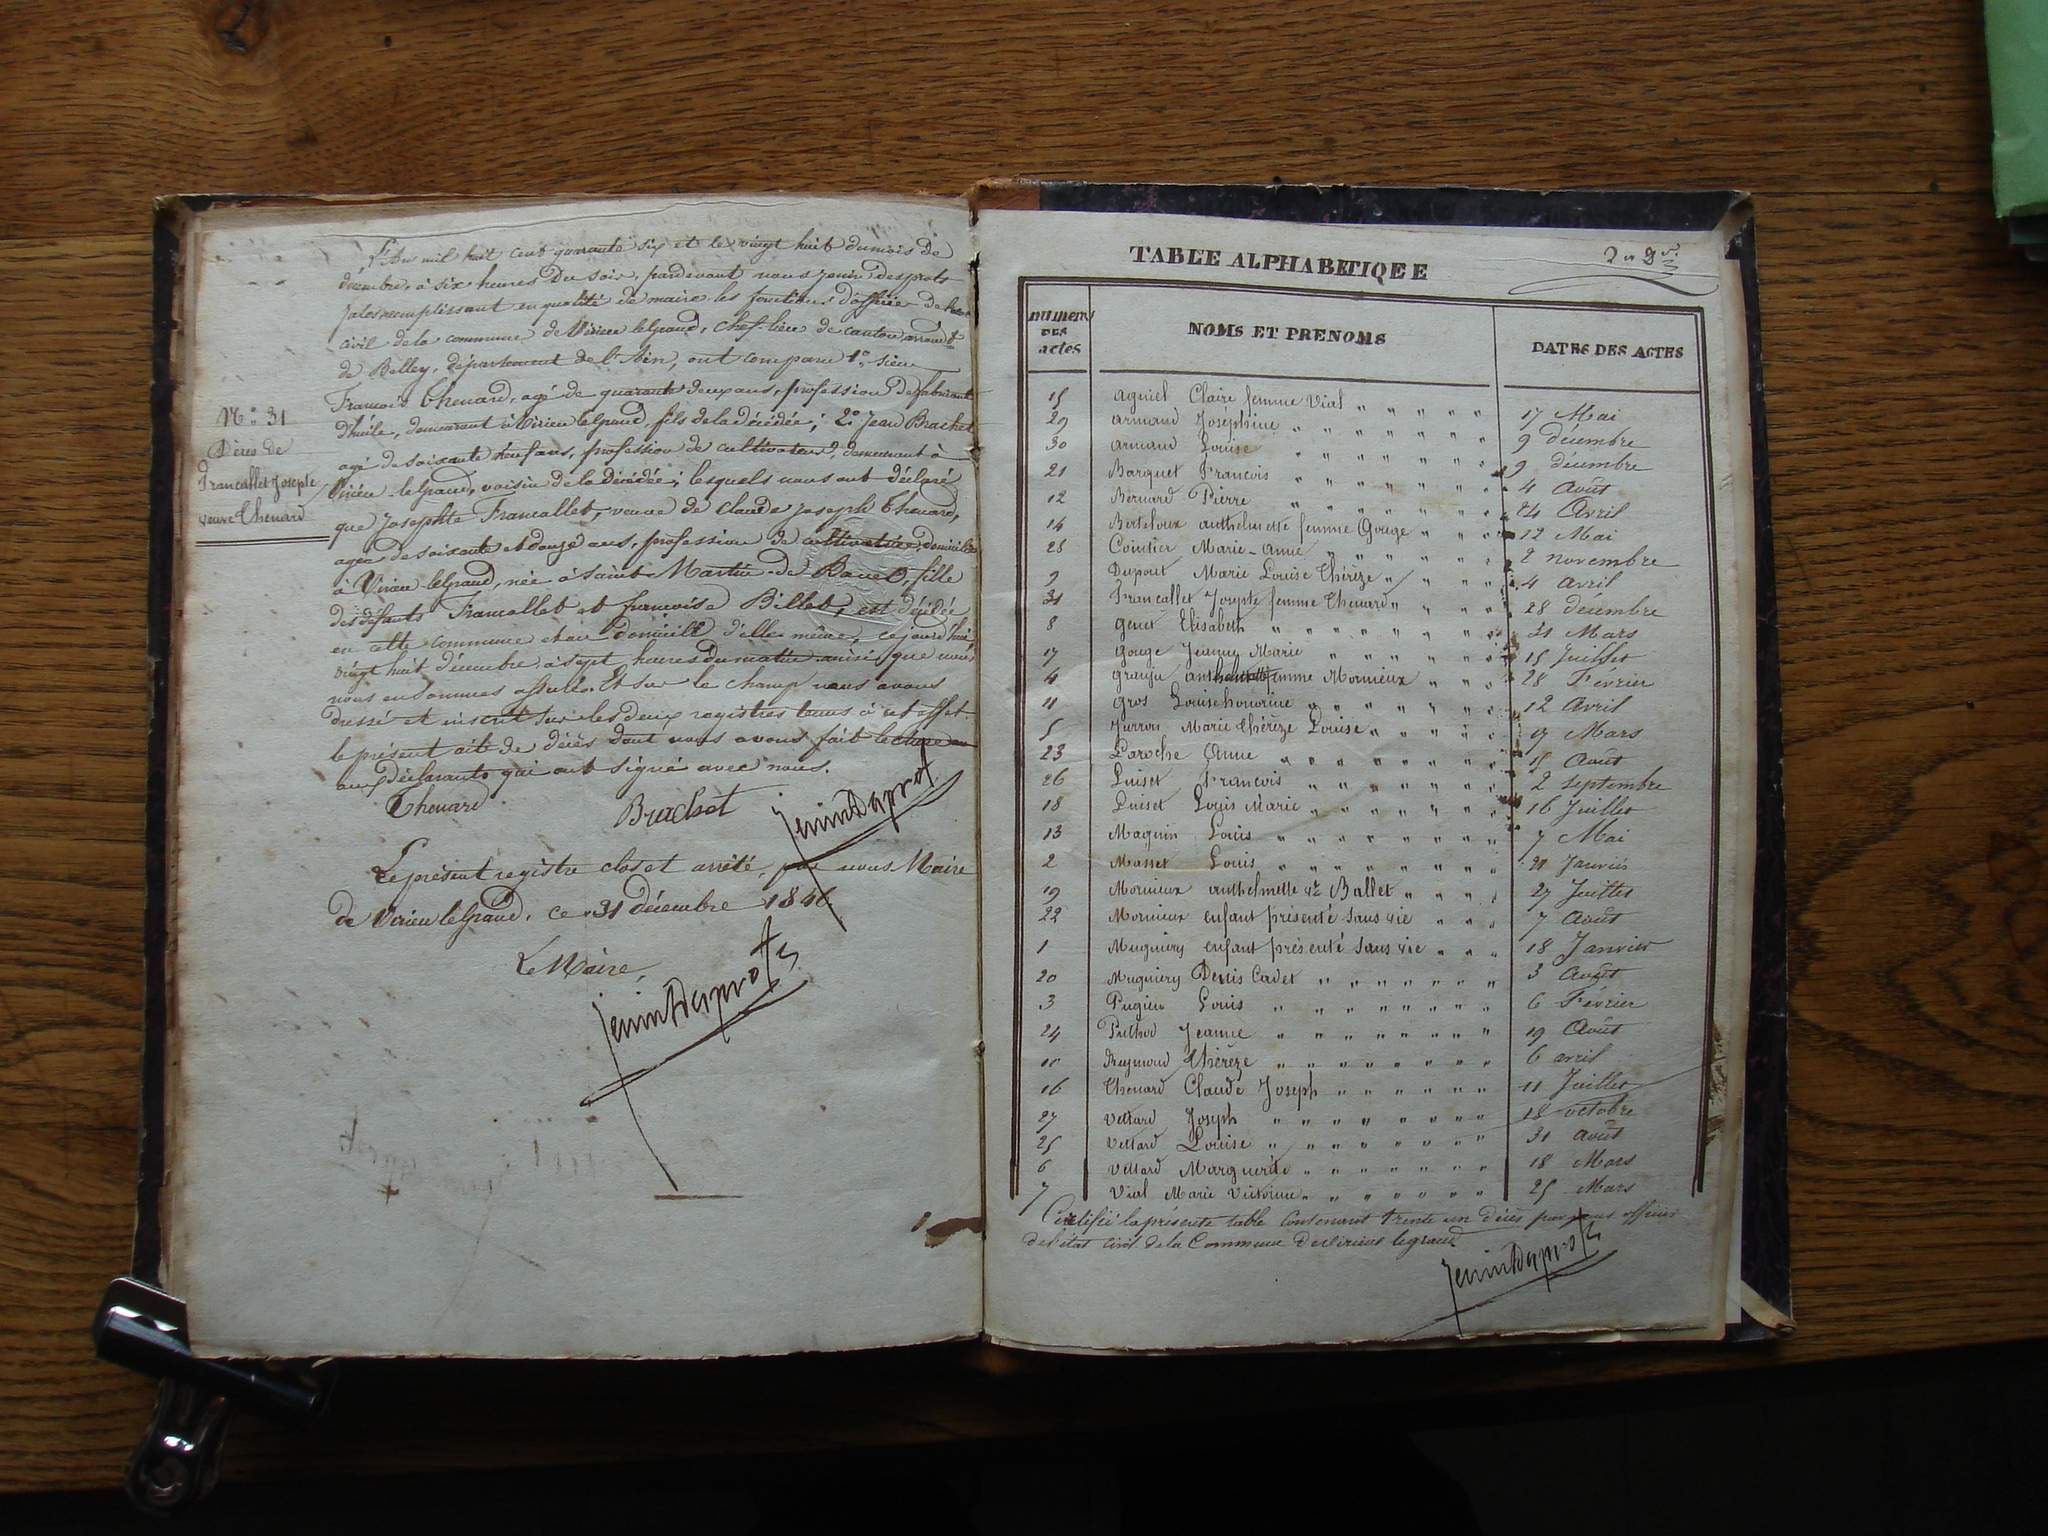 L'an mil huit cent quarante six et le vingt huit du mois de
décembre, à six heures du soir, pardevant nous Jenin Desprots
Jules remplissant en qualité de maire les fonctions d'officier de l'état
civil de la commune de Virieu le Grand, chef-lieu de canton, arrond.t
de Belley, département de l'Ain, ont comparu 1.o sieur
François Thenard, agé de quarante deux ans, profession de fabricant
d'huile, demeurant à Virieu le Grand, fils de la décédée; 2.o Jean Brachet
agé de soixante neuf ans, profession de cultivateur, demeurant à
Virieu-le Grand, voisin de la décédée; lesquels nous ont déclaré
que Josephte Francallet, veuve de Claude Joseph Thenard,
agée de soixante et douze ans, profession de cultivatrice, domiciliée
à Virieu-le Grand, née à Saint-Martin-de Bavel, fille
des défunts Francallet et françoise Billet, est décédée
en cette commune et au domicile d'elle même, ce jourd'hui
vingt huit décembre à sept heures du matin ainsi que nous
nous en sommes assurés. Et sur le champ nous avons
dressé et inscrit sur les deux registres tenus à cet effet
le présent acte de décès dont nous avons fait lecture
aux déclarants qui ont signé avec nous.
N.o 31
Décès de
Francallet Josepte
veuve Thenard
Thenard Brachet JeninDesprots
Le présent registre clos et arrêté, par nous Maire
de Virieu le Grand, ce 31 décembre 1846
Le Maire,
JeninDesprots
TABLE ALPHABETIQEE
NUMEROS DES actes NOMS ET PRENOMS DATES DES ACTES
15 Agniel Claire femme Vial " " " " " 17 Mai
29 armand Joséphine " " " " " " " 9 décembre
30 armand Louise " " " " " " " 9 décembre
21 Barquet François " " " " " " " 4 Août
12 Bernard Pierre " " " " " " " 24 Avril
14 Berteloux anthelmette femme Gouge " " " 12 Mai
28 Cointier Marie-anne " " " " " " 2 novembre
9 Dupont Marie Louise Thérèze " " " " 4 avril
31 Francallet Josepte femme Thenard " " " " 28 décembre
8 Genet Elisabeth " " " " " " " 31 Mars
17 Gouge Jeanne Marie " " " " " " 15 Juillet
4 Granju anthelmette femme Mornieux " " " 28 Février
11 Gros Louise honorine " " " " " " 12 Avril
5 Marie Thérèze Louise " " " " 17 Mars
23 Laroche Anne " " " " " " " 15 Août
26 Luiset François " " " " " " 2 septembre
18 Luiset Louis Marie " " " " " " 16 Juillet
13 Maquin Louis " " " " " " " 7 Mai
2 Masset Louis " " " " " " " 21 Janvier
19 Mornieux anthelmette v.e Ballet " " " " 27 Juillet
22 Mornieux enfant présenté sans vie " " " 7 Août
1 Mugniery enfant présenté sans vie " " " 18 Janvier
20 Mugniery Denis Cadet " " " " " " 3 Août
3 Pugieu Louis " " " " " " " 6 Février
24 Puthod Jeanne " " " " " " " 19 Août
10 Reymond Thérèze " " " " " " " 6 avril
16 Thenard Claude Joseph " " " " " " 11 Juillet
27 Vettard Joseph " " " " " " " 18 octobre
25 Vettard Louise " " " " " " " 31 août
6 Vettard Marguerite " " " " " " " 18 Mars
7 Vial Marie Victorine " " " " " " 25 Mars
Certifié la présente table contenant trente un décès par nous officier
de l'état civil de la Commune de Virieu le grand
JeninDesprots